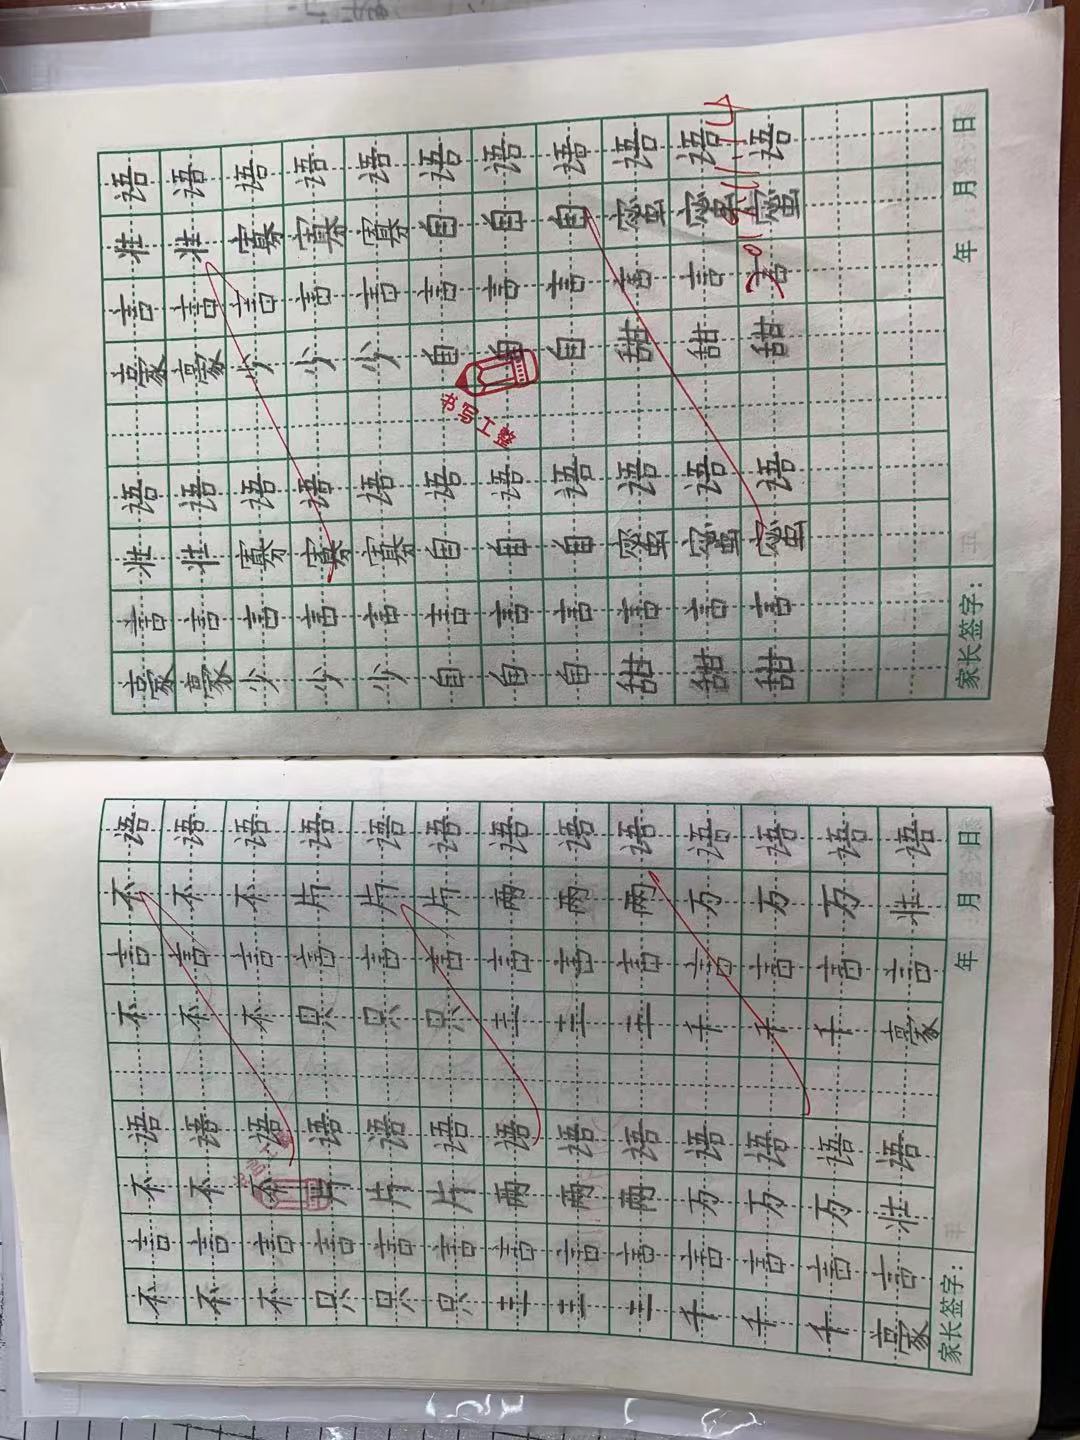 不言不语 不言不语
不言不语 不言不语
不言不语 不言不语
只言片语 只言片语
只言片语 只言片语
只言片语 只言片语
三言两语 三言两语
三言两语 三言两语
三言两语 三言两语
千言万语 千言万语
千言万语 千言万语
千言万语 千言万语
豪言壮语 豪言壮语
家长签字: 年 月 日
豪言壮语 豪言壮语
豪言壮语 豪言壮语
少言寡语 少言寡语
少言寡语 少言寡语
少言寡语 少言寡语
自言自语 自言自语
自言自语 自言自语
自言自语 自言自语
书写工整
甜言蜜语 甜言蜜语
甜言蜜语 甜言蜜语
甜言蜜语 甜言蜜语
家长签字: 年 月 日